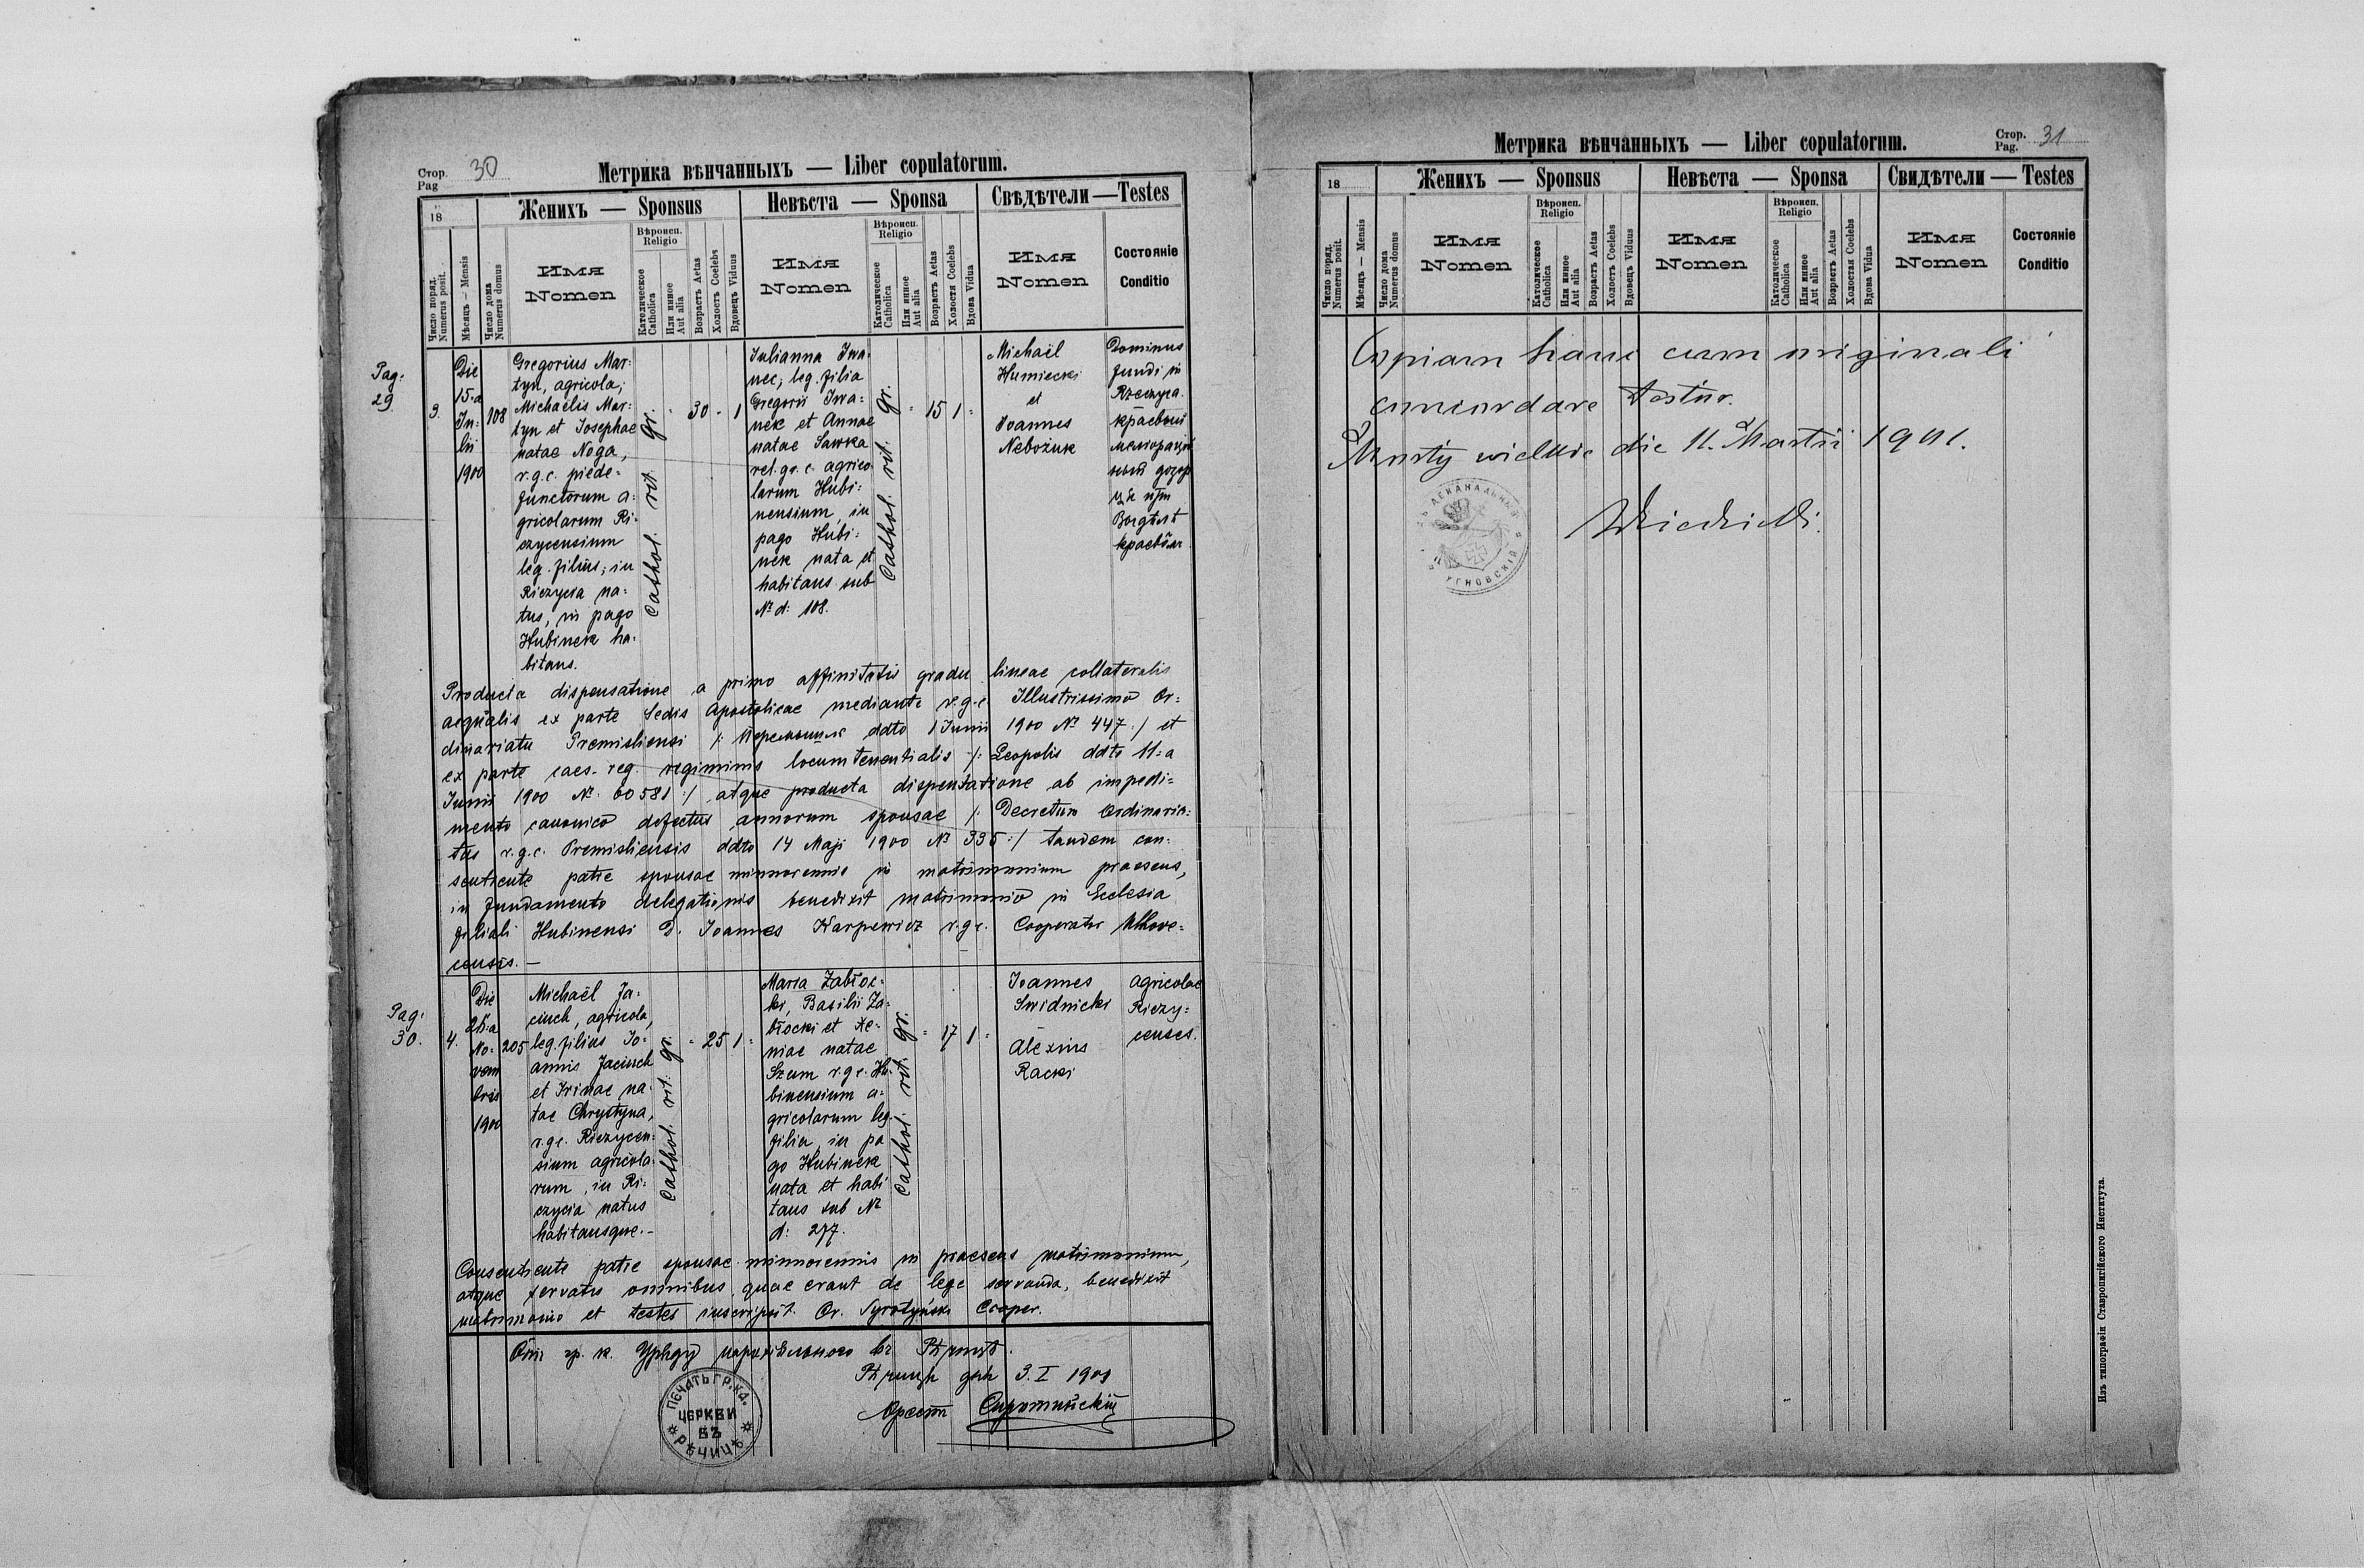 Стор.
Pag 30
Метрика вѣнчанныхъ — Liber copulatorum.
18
Женихъ — Sponsus
Невѣста — Sponsa
Свѣдѣтели — Testes
Число поряд.
Numerus posit.
Мѣсяцъ — Mensis
Число дома
Numerus domus
Имя
Nomen
Вѣроисп.
Religio
Католическое
Catholica
Или инное
Aut alia
Возрастъ Aetas
Холостъ Coelebs
Вдовецъ Viduus
Имя
Nomen
Вѣроисп.
Religio
Католическое
Catholica
Или инное
Aut alia
Возрастъ Aetas
Холостя Coelebs
Вдова Vidua
Имя
Nomen
Состояніе
Conditio
Pag.
29.
3.
Die
15-a
Ju=
lii
1900
108
Gregorius Mar=
tyn, agricola,
Michaëlis Mar=
tyn et Josephae
natae Noga,
r.g.c. piede=
functorum a=
gricolarum Ri=
czycensium
leg. filius, in
Riczyca na=
tus, in pago
Hubinek ha=
bitans.
Cathol. rit. gr.
30 - 1
Julianna Iwa=
nec, leg. filia
Gregorii Iwa=
nek et Annae
natae Sawka
rel. gr. c. agrico
larum Hubi=
nensium, in
pago Hubi=
nek nata et
habitans sub
No d: 108.
Cathol. rit. gr.
15 1
Michaël
Humiecki
et
Joannes
Nebożuk
Dominus
fundi in
Rzeczyca.
краевый
мелорацій
ный дозор
це при
Выдѣлѣ
краевôм
Producta dispensatione a primo affinitatis gradu lineae collateralis
aequalis ex parte Sedis Apostolicae mediante r.g.c. Illustrissimo Or=
dinariatu Premisliensi /: Перемышль ddto 1 Junii 1900 No 447 :/ et
ex parte caes. reg. regiminis locumtenentialis /: Leopolis ddto 11=a
Junii 1900 No. 60581 :/ atque producta dispensatione ab impedi=
mento canonico defectus annorum sponsae /: Decretum Ordinaria=
tus r.g.c. Premisliensis ddto 14 Maji 1900 No 335 :/ tandem con=
sentiente patre sponsae minorennis in matrimonium praesens,
in fundamento delegationis benedixit matrimonio in Ecclesia
filiali Hubinensi D. Joannes Karpewicz r.g.c. Cooperator Uhkove=
censis. —
Pag.
30.
4.
Die
26=a
No=
vem
bris
1900
205
Michaël Ja=
ciuch, agricola,
leg. filius Jo=
annis Jaciuch
et Irinae na=
tae Chrystyna,
r.g.c. Riczycen=
sium agricola=
rum, in Ri=
czycia natus
habitansque.—
Cathol. rit. gr.
25 1
Maria Zabłoc=
ki, Basilii Za=
błocki et Xe=
niae natae
Szum r.g.c. Hu=
binensium a=
gricolarum leg.
filia, in pa
go Hubinek
nata et habi
tans sub No
d: 277.
Cathol. rit. gr.
17 1
Joannes
Swidnicki
Alexius
Racki
agricolae
Riczy=
censes.
Consentiente patre sponsae minorennis in praesens matrimonium,
atque servatis omnibus, quae erant de lege servanda, benedixit
matrimonio et testes inscripsit. Or. Syrotyński Cooper.
Отъ гр. к. Уряду парохіального въ Рѣчицѣ.
Рѣчица дня 3. I 1901
Орестъ Сиротиńскій
ПЕЧАТЬ ГР. КА.
ЦЕРКВИ
ВЪ
РѢЧИЦѢ
Стор.
Pag. 31
Метрика вѣнчанныхъ — Liber copulatorum.
18
Женихъ — Sponsus
Невѣста — Sponsa
Свидѣтели — Testes
Число поряд.
Numerus posit.
Мѣсяцъ — Mensis
Число дома
Numerus domus
Имя
Nomen
Вѣроисп.
Religio
Католическое
Catholica
Или инное
Aut alia
Возрастъ Aetas
Холостъ Coelebs
Вдовецъ Viduus
Имя
Nomen
Вѣроисп.
Religio
Католическое
Catholica
Или инное
Aut alia
Возрастъ Aetas
Холостая Coelebs
Вдова Vidua
Имя
Nomen
Состояніе
Conditio
Copiam hanc cum originali
concordare testor.
Mosty wielkie die 11. Martii 1901.
Изъ типографіи Ставропигійского Института.